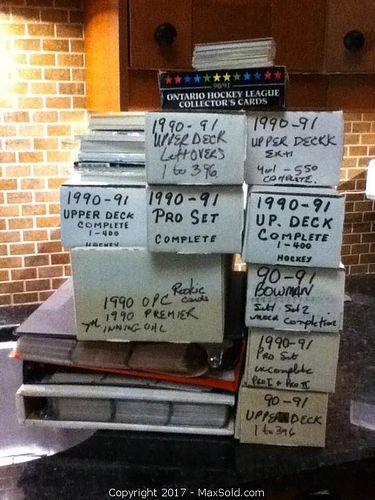 90/91
ONTARIO HOCKEY LEAGUE
COLLECTOR'S CARDS
1990-91
UPPER DECK
LEFTOVERS
1 to 396
1990-91
UPPER DECKK
401-550
COMPLETE.
1990-91
UPPER DECK
COMPLETE
1-400
HOCKEY
1990-91
PRO SET
COMPLETE
1990-91
UP. DECK
COMPLETE
1-400
HOCKEY
Rookie
cards
1990 OPC
1990 PREMIER
7th INNING OHL
90-91
BOWMAN
Set 1 Set 2
need completion
1990-91
Pro Set
incomplete
Pro I + Pro II
90-91
UPPER DECK
1 to 396
Copyright 2017 - MaxSold.com